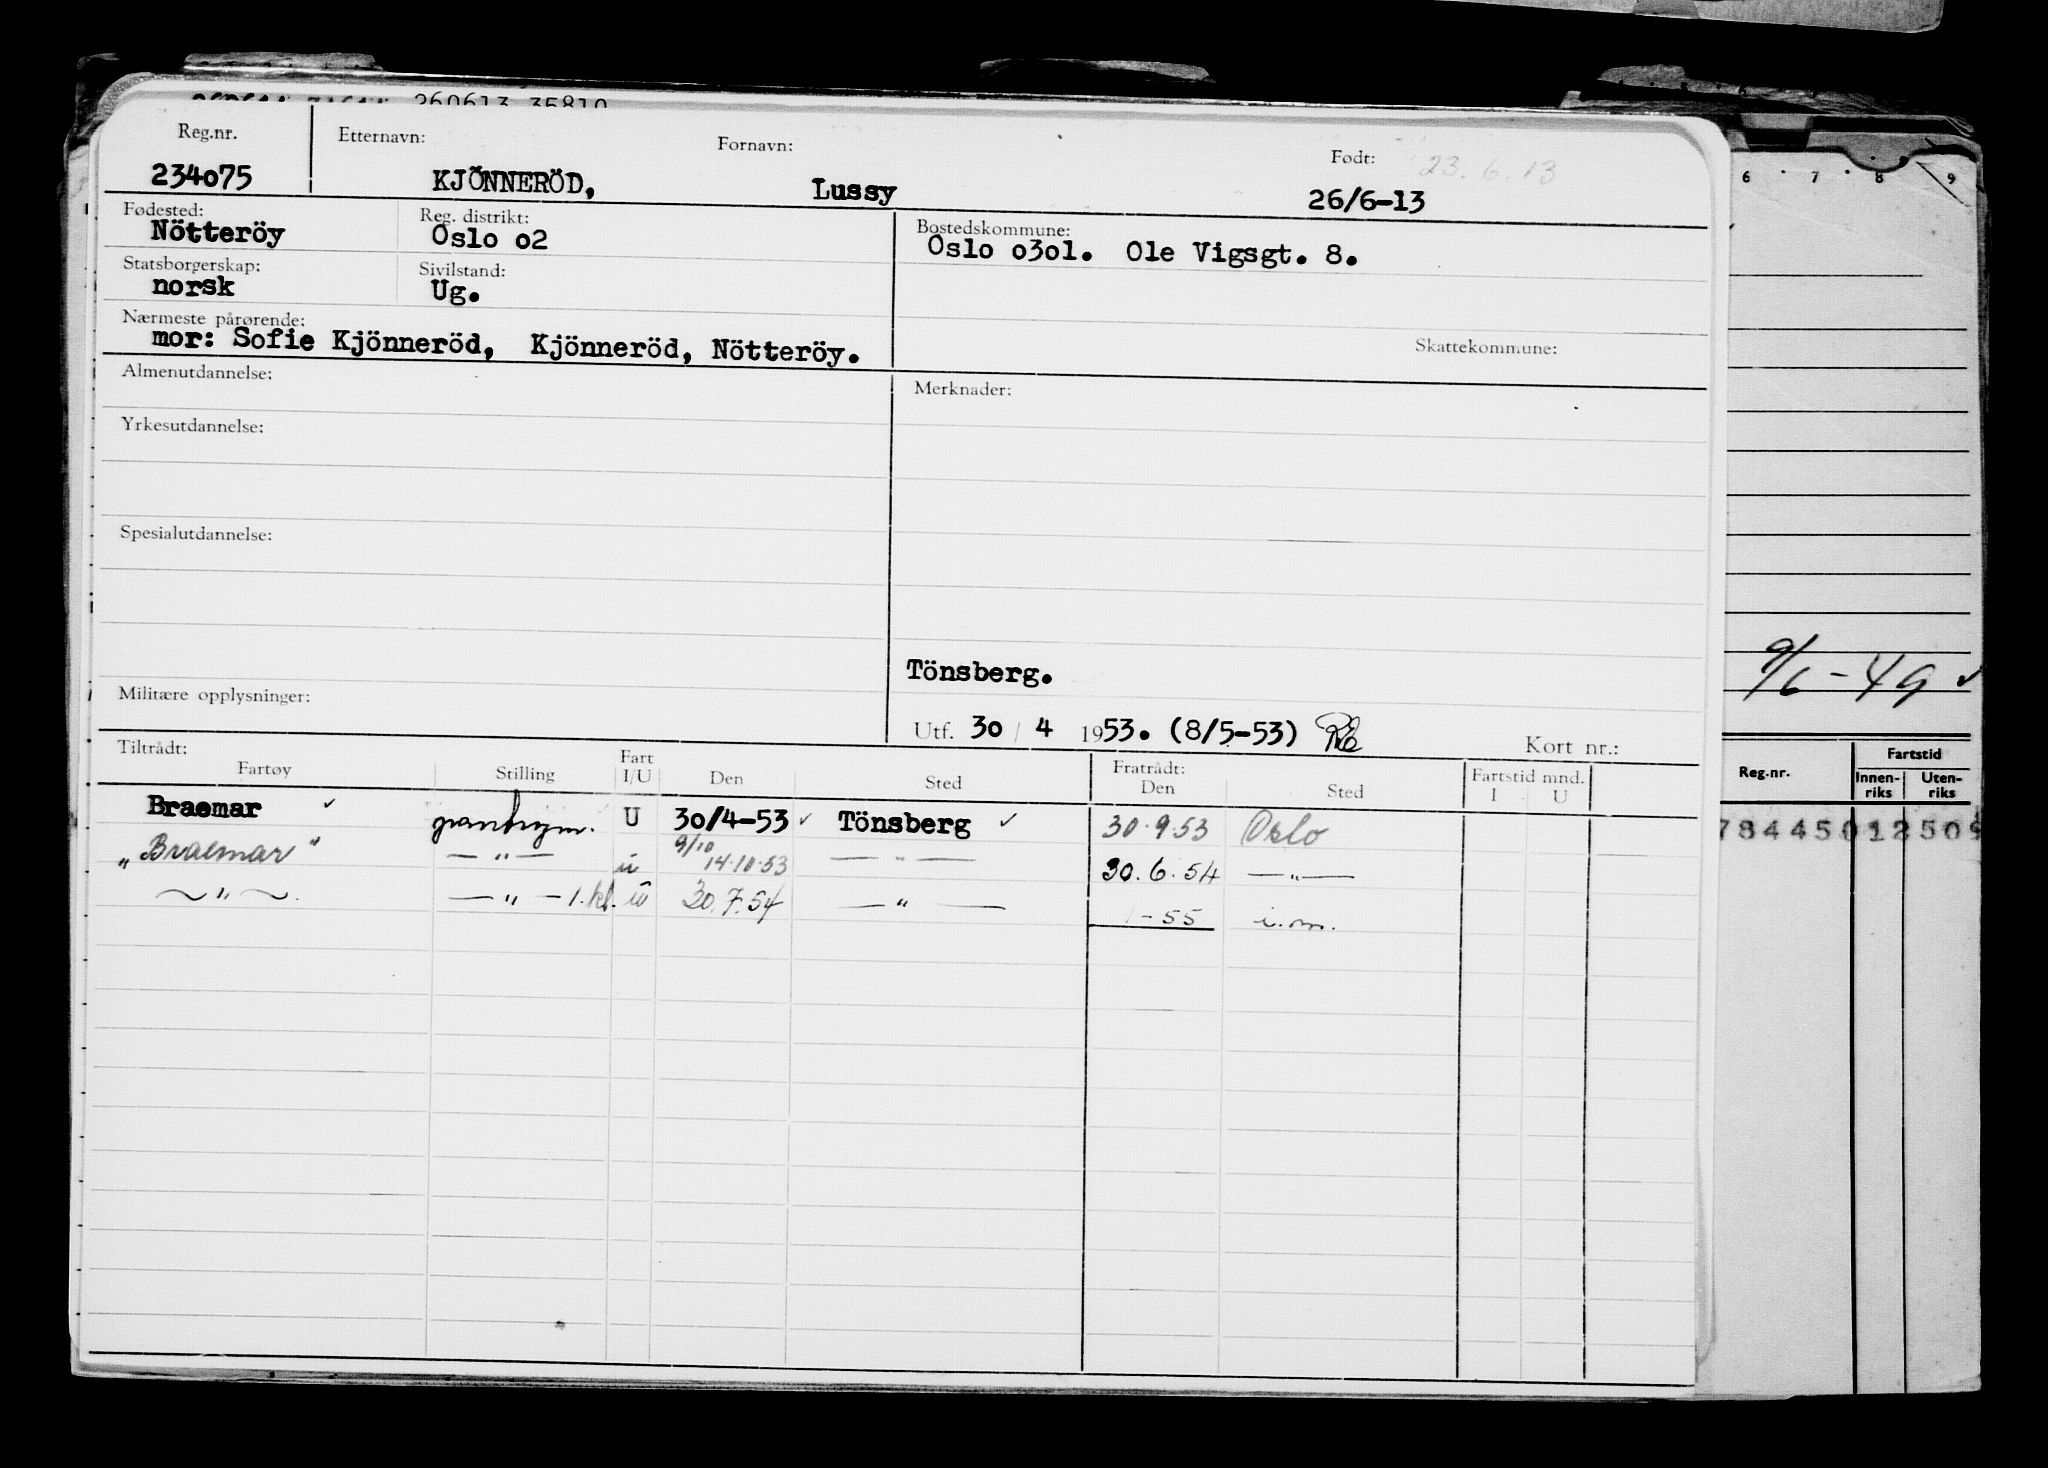 260613 35810
Reg.nr. Etternavn: Fornavn: Født: 23.6.13
234o75 KJÖNNERÖD, Lussy 26/6-13
Fødested: Reg. distrikt: Bostedskommune:
Nötteröy Oslo o2 Oslo o3o1. Ole Vigsgt. 8.
Statsborgerskap: Sivilstand:
norsk Ug.
Nærmeste pårørende: Skattekommune:
mor: Sofie Kjönneröd, Kjönneröd, Nötteröy.
Almenutdannelse: Merknader:
Yrkesutdannelse:
Spesialutdannelse:
Tönsberg.
Militære opplysninger:
Utf. 30 / 4 1953. (8/5-53) Kort nr.:
Tiltrådt: Fratrådt:
Fartøy Stilling Fart I/U Den Sted Den Sted Fartstid mnd. I U
Braemar ✓ U 30/4-53 ✓ Tönsberg ✓ 30.9.53 Oslo
"Braemar" — " — u 9/10 14.10.53 — " — 30.6.54 — " —
— " — — " — 1.kl. u 30.7.54 — " — 1-55 i.m.
6 7 8 9
9/6-49 ✓
Reg.nr. Fartstid
Innen-riks Uten-riks
78445012509